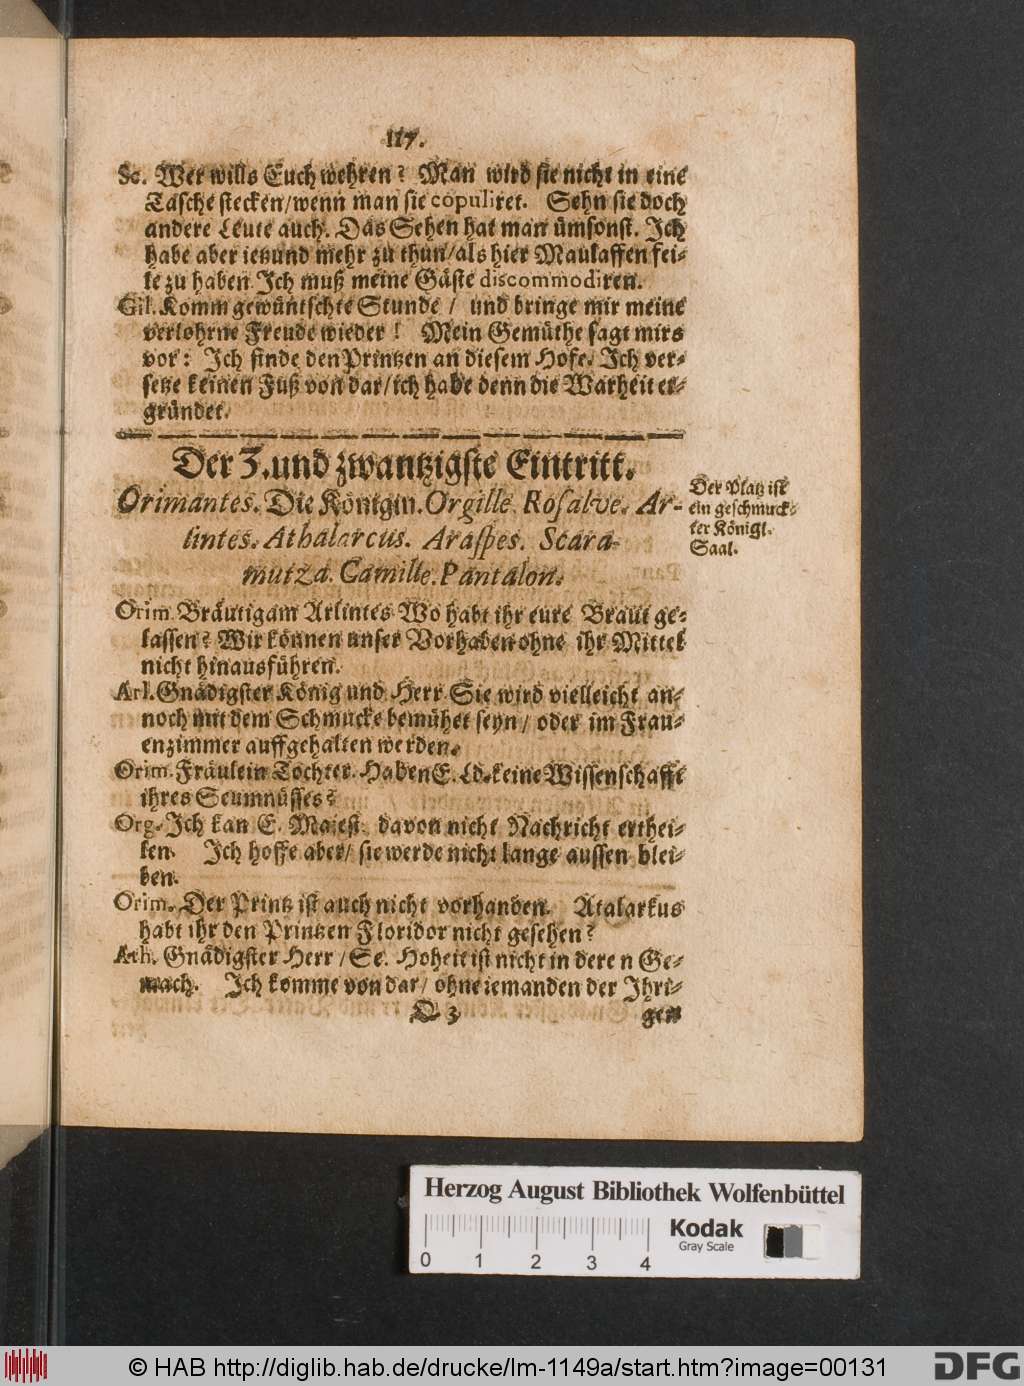 117.
Sc. Wer wills Euch wehren? Man wird sie nicht in eine
Tasche stecken/wenn man sie copuliret. Sehn sie doch
andere Leute auch. Das Sehen hat man ümsonst. Ich
habe aber ietzund mehr zu thun/als hier Maulaffen fei-
le zu haben Ich muß meine Gäste discommodiren.
Gil. Komm gewüntschte Stunde / und bringe mir meine
verlohrne Freude wieder! Mein Gemüthe sagt mirs
vor: Ich finde den Printzen an diesem Hofe. Ich ver-
setze keinen Fuß von dar/ich habe denn die Warheit er-
gründet.
Der 3. und zwantzigste Eintritt.
Orimantes. Die Königin. Orgille. Rosalve. Ar-
lintes. Athalarcus. Araspes. Scara-
mutza. Camille. Pantalon.
Der Platz ist
ein geschmuck-
ter Königl.
Saal.
Orim. Bräutigam Arlintes Wo habt ihr eure Braut ge-
lassen? Wir können unser Vorhaben ohne ihr Mittel
nicht hinausführen.
Arl. Gnädigster König und Herr Sie wird vielleicht an-
noch mit dem Schmucke bemühet seyn / oder im Frau-
enzimmer auffgehalten werden.
Orim. Fräulein Tochter. Haben E. Ld. keine Wissenschafft
ihres Seumnüsses?
Org. Ich kan E. Majest. davon nicht Nachricht erthei-
len. Ich hoffe aber/ sie werde nicht lange aussen blei-
ben.
Orim. Der Printz ist auch nicht vorhanden. Atalarkus
habt ihr den Printzen Floridor nicht gesehen?
Ath. Gnädigster Herr / Se. Hoheit ist nicht in deren Ge-
mach. Ich komme von dar/ ohne iemanden der Ihri-
gen
Herzog August Bibliothek Wolfenbüttel
0 1 2 3 4
Kodak
Gray Scale
© HAB http://diglib.hab.de/drucke/lm-1149a/start.htm?image=00131
DFG